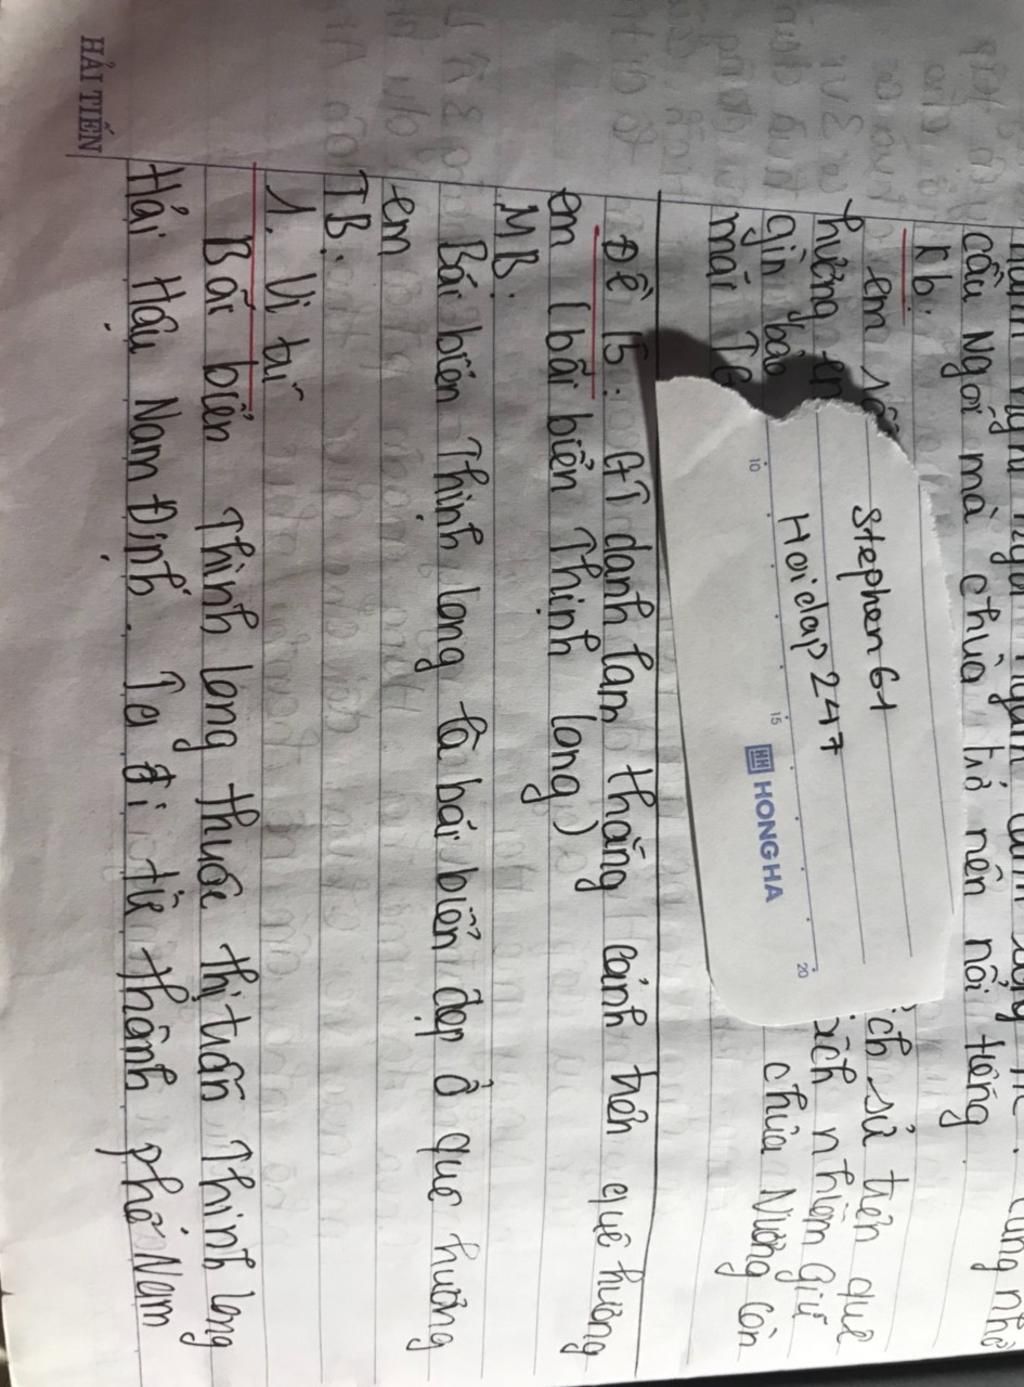 câu Ngói mà chùa trở nên nổi tiếng
Kb:
em
ịch sử trên quê
hương em
ách nhiệm giữ
gìn bảo
chùa Nương còn
mãi
Stephen61
Hoidap247
10
15
20
HH HONG HA
Đề 15: GT danh lam thắng cảnh trên quê hương
em (bãi biển Thịnh long)
MB:
Bãi biển Thịnh long là bãi biển đẹp ở quê hương
em
TB:
1. Vị trí
Bãi biển Thịnh long thuộc thị trấn Thịnh long
Hải Hậu Nam Định. Ta đi từ thành phố Nam
HẢI TIẾN